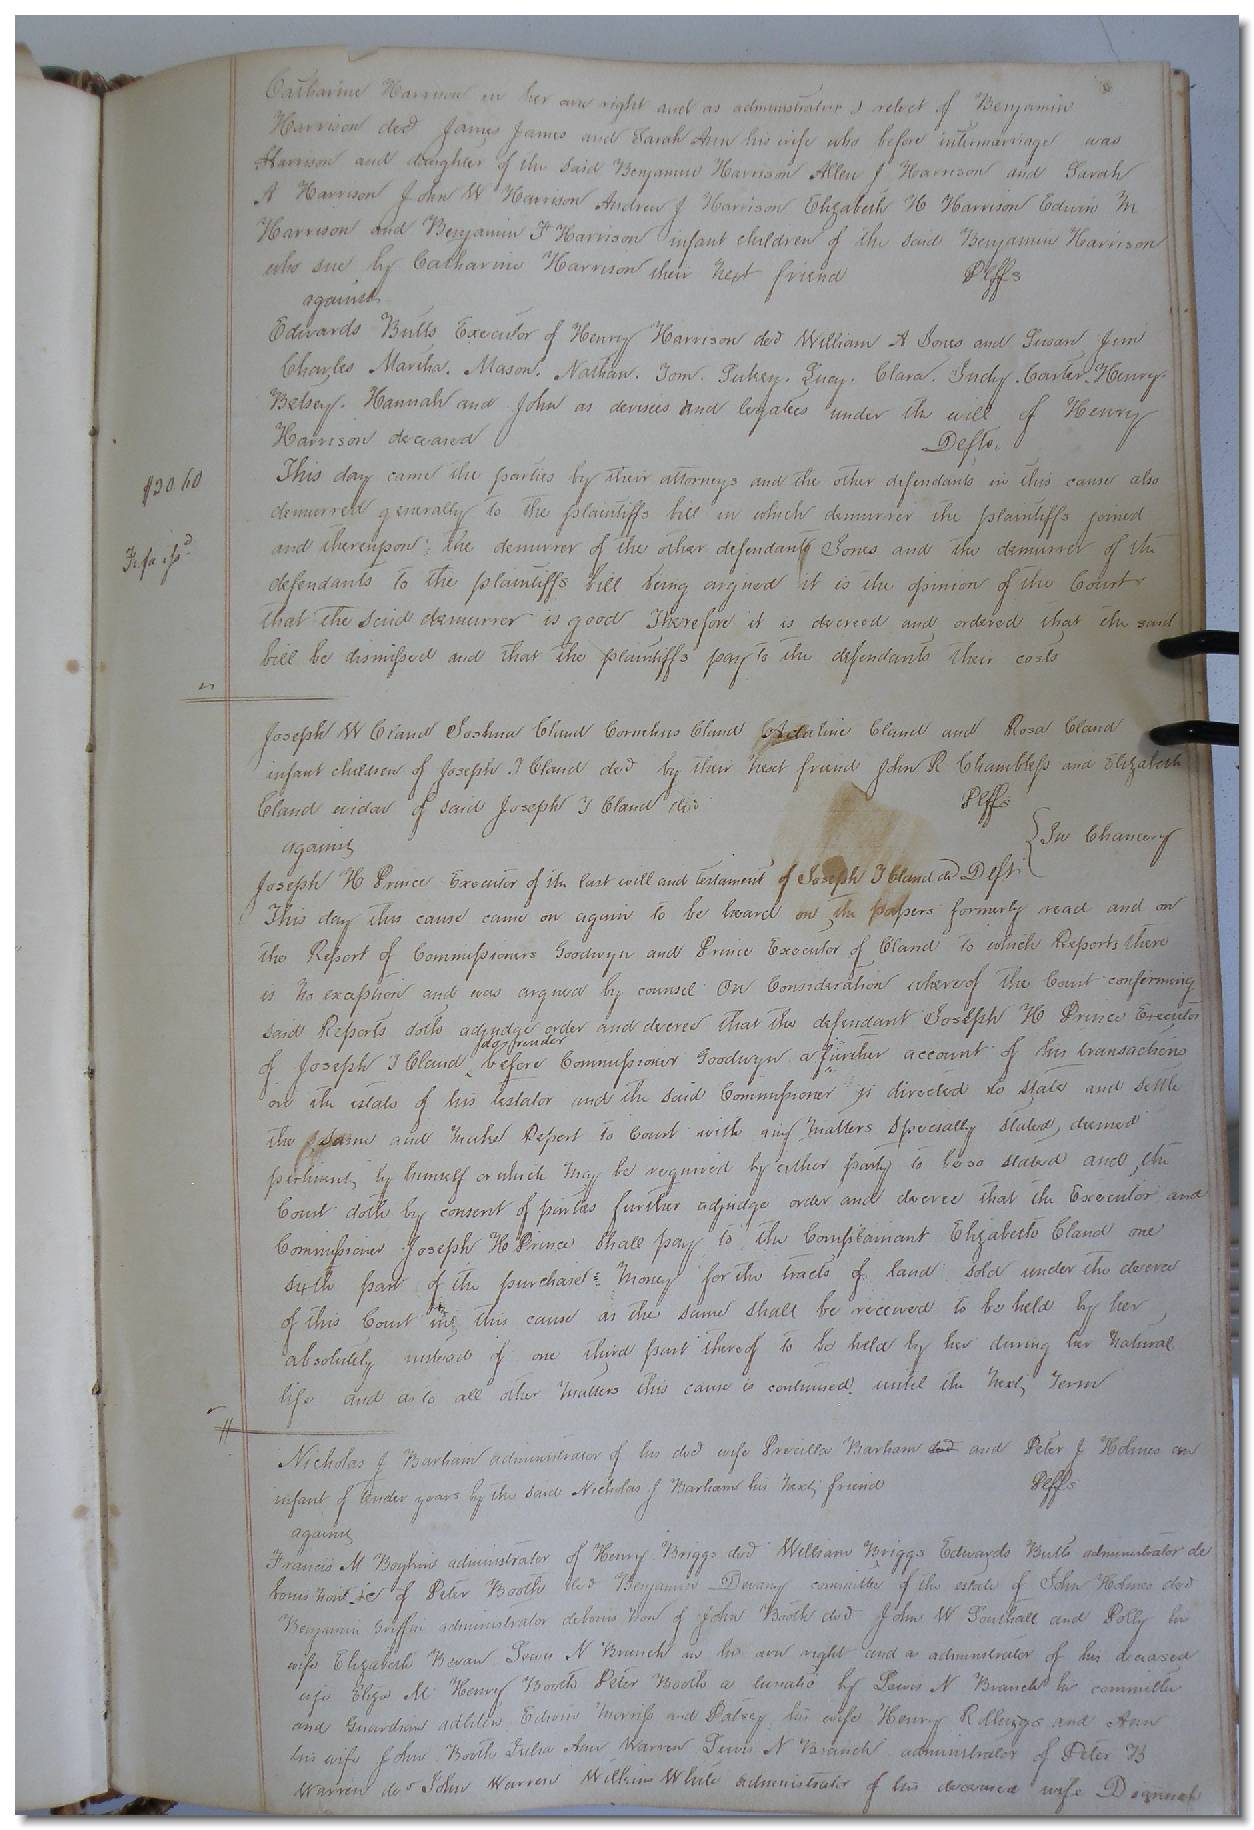 Catharine Harrison in her own right and as administratrix & relect of Benjamin
Harrison decd James James and Sarah Ann his wife who before intermarriage was
Harrison and daughter of the said Benjamin Harrison Allen J Harrison and Sarah
A Harrison John W Harrison Andrew J Harrison Elizabeth H Harrison Edwin M
Harrison and Benjamin F Harrison infant children of the said Benjamin Harrison
who sue by Catharine Harrison their next friend Plffs
against
Edwards Butts Executor of Henry Harrison decd William A Jones and Susan Jim
Charles Martha. Mason. Nathan. Tom. Lucy. Clara. Judy. Carter. Henry.
Betsey. Hannah and John as devisees and legatees under the will of Henry
Harrison deceased Defts.
This day came the parties by their attorneys and the other defendants in this cause also
$30.60
demurred generally to the plaintiffs bill in which demurrer the plaintiffs joined
and thereupon the demurrer of the other defendants Jones and the demurrer of the
Fi fa issd
defendants to the plaintiffs bill being argued it is the opinion of the Court
that the said demurrer is good Therefore it is decreed and ordered that the said
bill be dismissed and that the plaintiffs pay to the defendants their costs
Joseph W Cland Joshua Cland Cornelius Cland Adaline Cland and Rosa Cland
infant children of Joseph T Cland decd by their next friend John R Chambless and Elizabeth
Cland widow of said Joseph T Cland decd Plffs
against } In Chancery
Joseph H Prince Executor of the last will and testament of Joseph T Cland decd Deft
This day this cause came on again to be heard on the papers formerly read and on
the Report of Commissioners Goodwyn and Prince Executor of Cland to which Reports there
is no exception and was argued by counsel On Consideration whereof the Court confirming
said Reports doth adjudge order and decree that the defendant Joseph H Prince Executor
of Joseph T Cland do render before Commissioner Goodwyn a further account of his transactions
on the estate of his testator and the said Commissioner is directed to state and settle
the same and make Report to Court with any matters specially stated, deemed
pertinent by himself or which may be required by either party to be so stated and the
Court doth by consent of parties further adjudge order and decree that the Executor and
Commissioner Joseph H Prince shall pay to the Complainant Elizabeth Cland one
sixth part of the purchase money for the tracts of land sold under the decree
of this Court in this cause as the same shall be received to be held by her
absolutely instead of one third part thereof to be held by her during her natural
life and as to all other matters this cause is continued until the next Term
Nicholas J Barham administrator of his decd wife Priscilla Barham decd and Peter J Holmes an
infant of under years by the said Nicholas J Barham his next friend Plffs
against
Francis M Boykin administrator of Henry Briggs decd William Briggs Edwards Butts administrator de
bonis non &c of Peter Booth decd Benjamin Devany committee of the estate of John Holmes decd
Benjamin Griffin administrator debonis non of John Booth decd John W Southall and Polly his
wife Elizabeth Bevan Lewis N Branch in his own right and as administrator of his deceased
wife Eliza M Henry Booth Peter Booth a lunatic by Lewis N Branch his committee
and Guardian adlitem Edwin Morriss and Patsey his wife Henry Rollings and Ann
his wife John Booth Julia Ann Warren Lewis N Branch administrator of Peter B
Warren decd John Warren Wilkins White administrator of his deceased wife